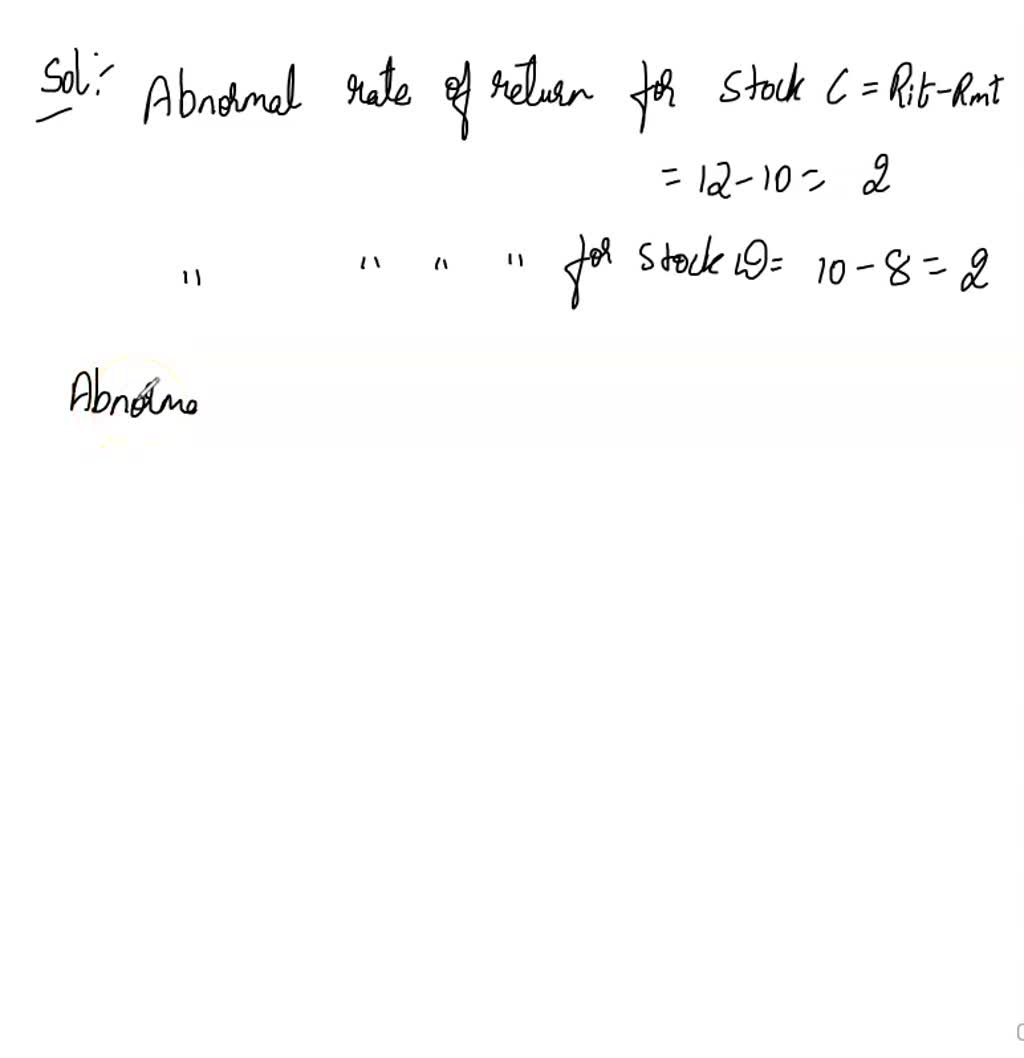 Sol:-
Abnormal rate of return for stock C = Rit - Rmt
= 12 - 10 = 2
" " " " for stock D = 10 - 8 = 2
Abnorma